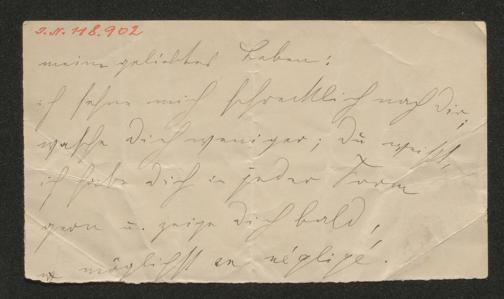 J.N. 118.902
meine geliebtes Leben!
ich sehne mich schrecklich nach Dir,
wasche Dich weniger; Du weißt,
ich habe Dich in jeder Form
gern u. zeige Dich bald,
möglichst en négligé.